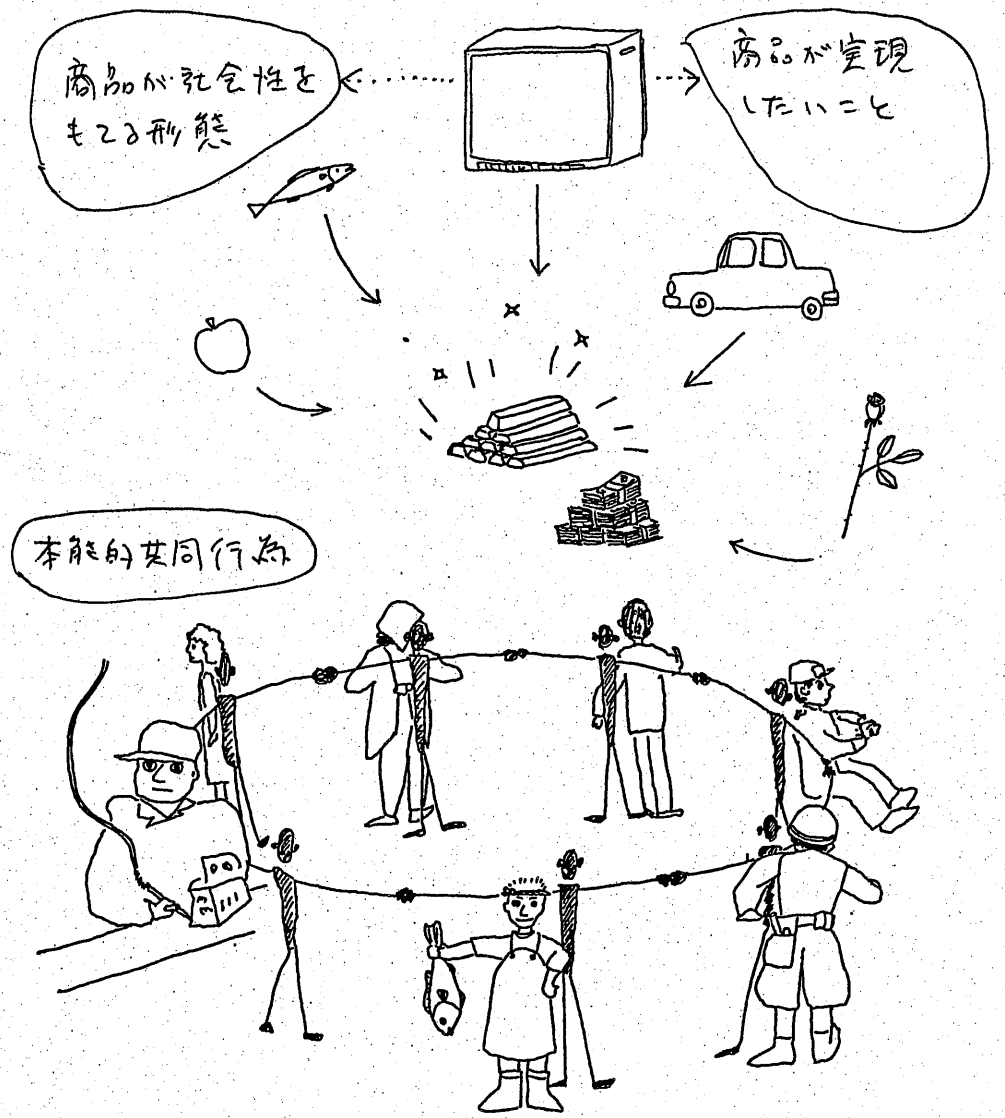 商品が社会性を
もてる形態
商品が実現
したいこと
本能的共同行為